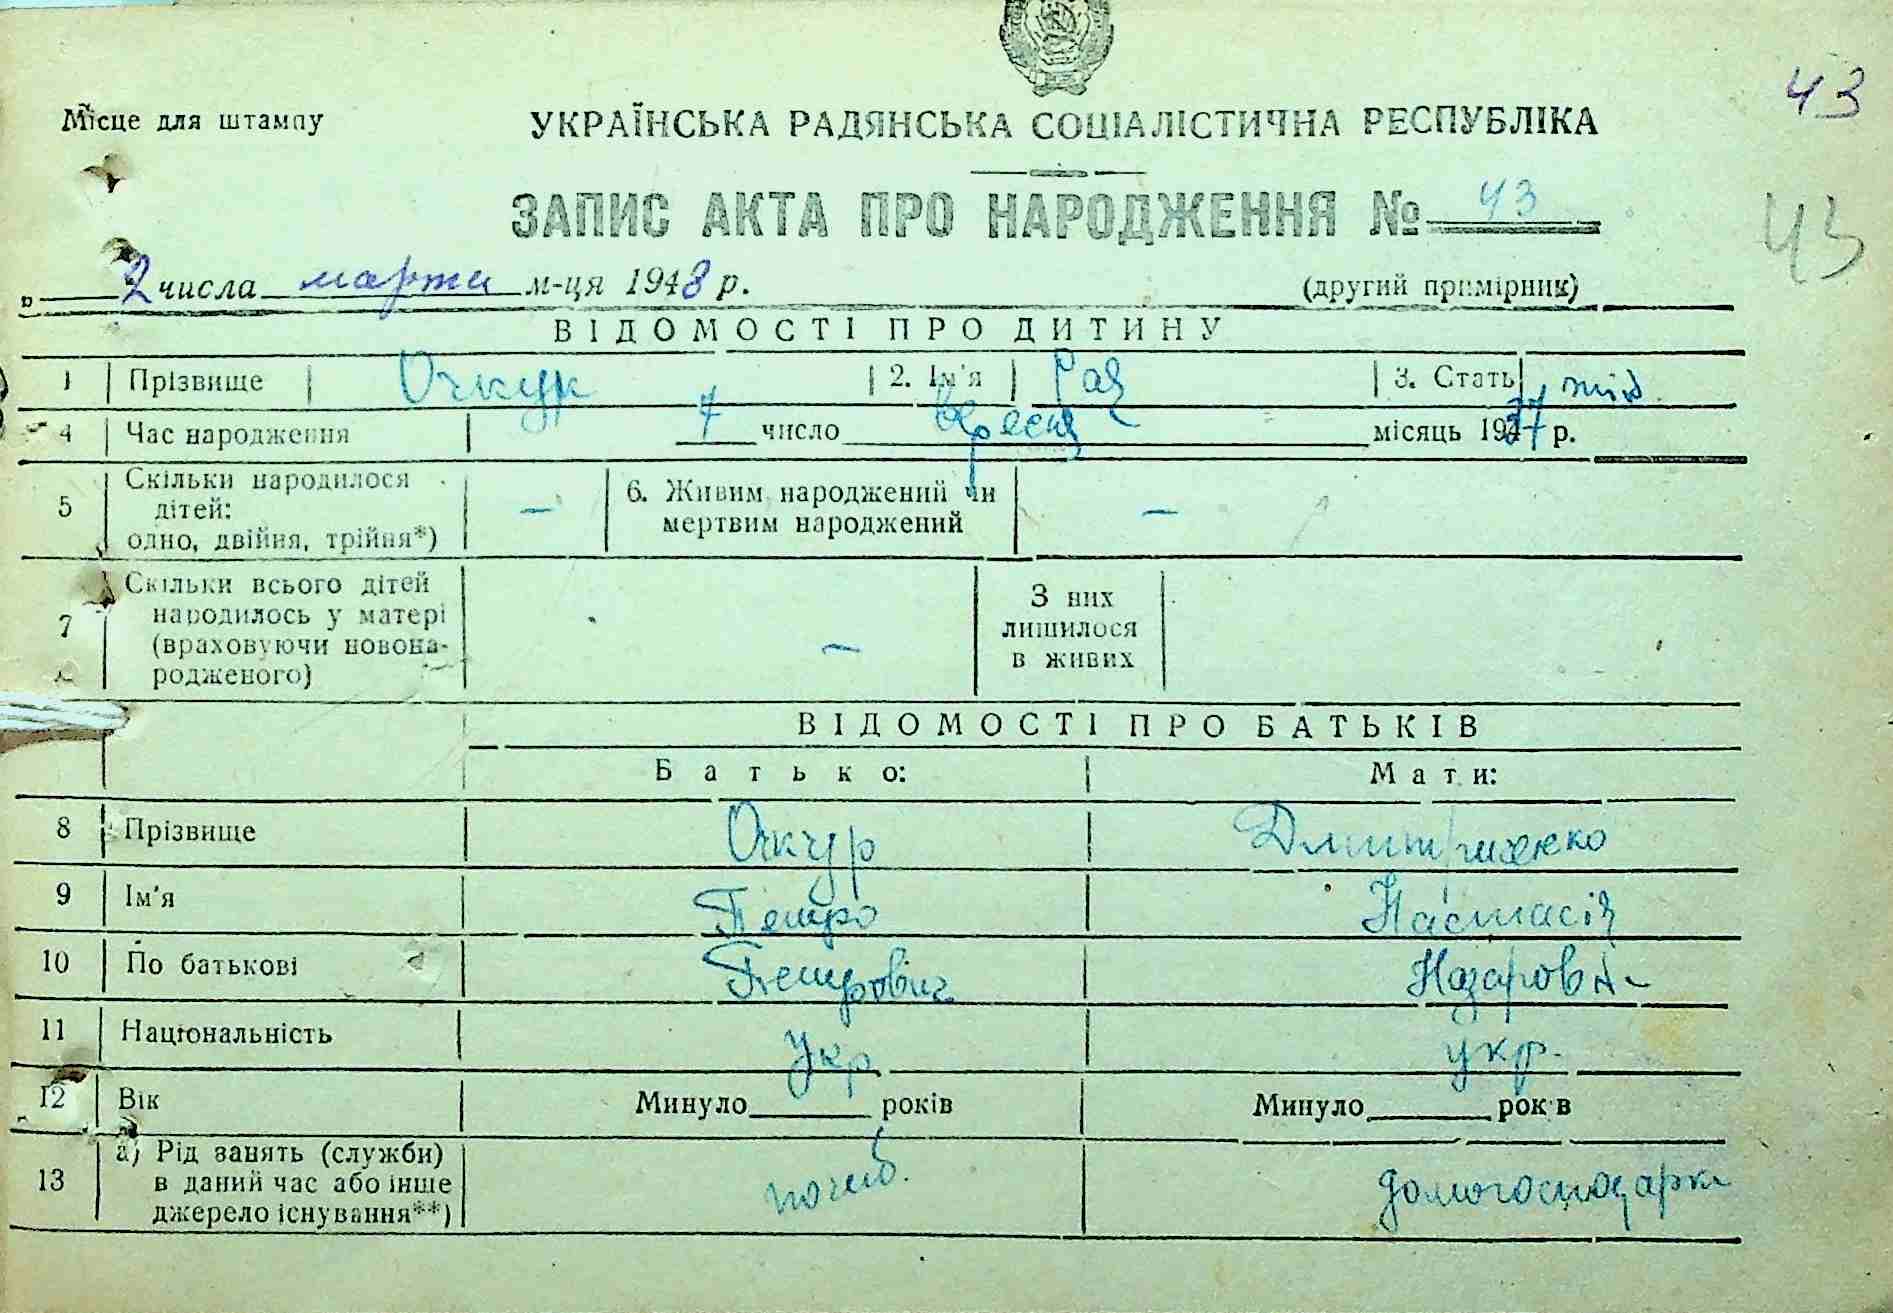 43
Місце для штампу
УКРАЇНСЬКА РАДЯНСЬКА СОЦІАЛІСТИЧНА РЕСПУБЛІКА
ЗАПИС АКТА ПРО НАРОДЖЕННЯ № 43
43
„ 2 числа марта м-ця 1948 р. (другий примірник)
ВІДОМОСТІ ПРО ДИТИНУ
1 Прізвище Очкур 2. Ім'я Рая 3. Стать жін.
4 Час народження 7 число вересня місяць 1937 р.
5 Скільки народилося дітей: одно, двійня, трійня*) — 6. Живим народжений чи мертвим народжений —
7 Скільки всього дітей народилось у матері (враховуючи новонародженого) — З них лишилося в живих
ВІДОМОСТІ ПРО БАТЬКІВ
Батько: Мати:
8 Прізвище Очкур Дмитриченко
9 Ім'я Петро Настасія
10 По батькові Петрович Назаровн
11 Національність Укр укр.
12 Вік Минуло років Минуло рок в
13 а) Рід занять (служби) в даний час або інше джерело існування**) домогосподарка